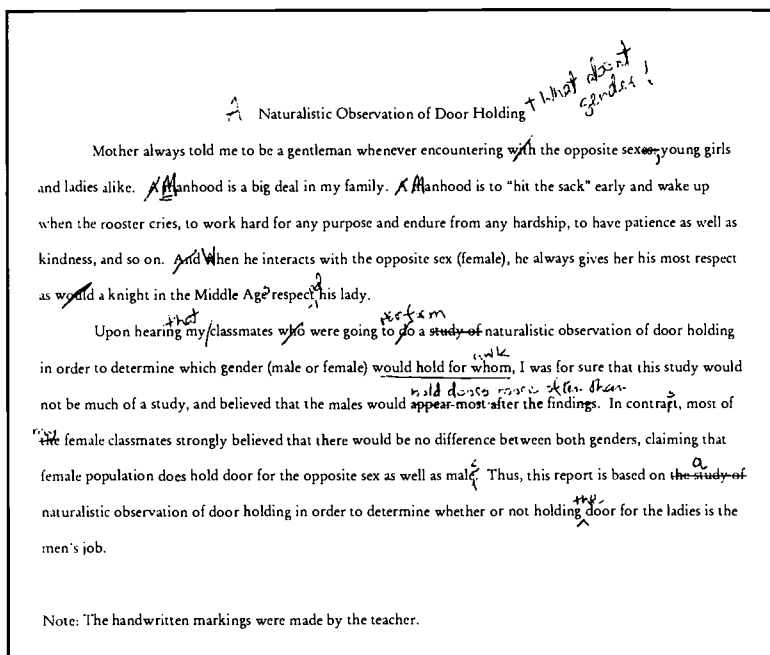 A Naturalistic Observation of Door Holding + What about gender!
Mother always told me to be a gentleman whenever encountering with the opposite sexes, young girls
and ladies alike. A Manhood is a big deal in my family. A Manhood is to "hit the sack" early and wake up
when the rooster cries, to work hard for any purpose and endure from any hardship, to have patience as well as
kindness, and so on. And When he interacts with the opposite sex (female), he always gives her his most respect
as would a knight in the Middle Age respect his lady.
that perform
Upon hearing my classmates who were going to do a study of naturalistic observation of door holding
awk
in order to determine which gender (male or female) would hold for whom, I was for sure that this study would
hold doors more often than
not be much of a study, and believed that the males would appear most after the findings. In contrast, most of
the female classmates strongly believed that there would be no difference between both genders, claiming that
a
female population does hold door for the opposite sex as well as male. Thus, this report is based on the study of
the
naturalistic observation of door holding in order to determine whether or not holding door for the ladies is the
men's job.
Note: The handwritten markings were made by the teacher.